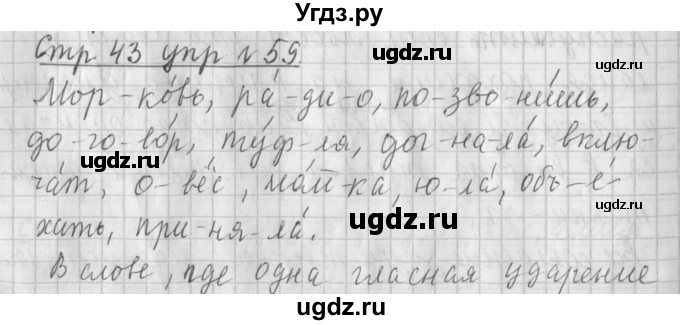 Угдз.ру
Стр 43 упр №59.
Мор-ко́вь, ра́-ди-о, по-зво-ни́шь,
до-го-во́р, ту́ф-ля, дог-на-ла́, вклю-
ча́т, о-вёс, ма́й-ка, ю-ла́, объ-е́-
хать, при-ня-ла́.
В слове, где одна гласная ударение
ugdz.ru
ugdz.ru
ugdz.ru
ugdz.ru
ugdz.ru
ugdz.ru
ugdz.ru